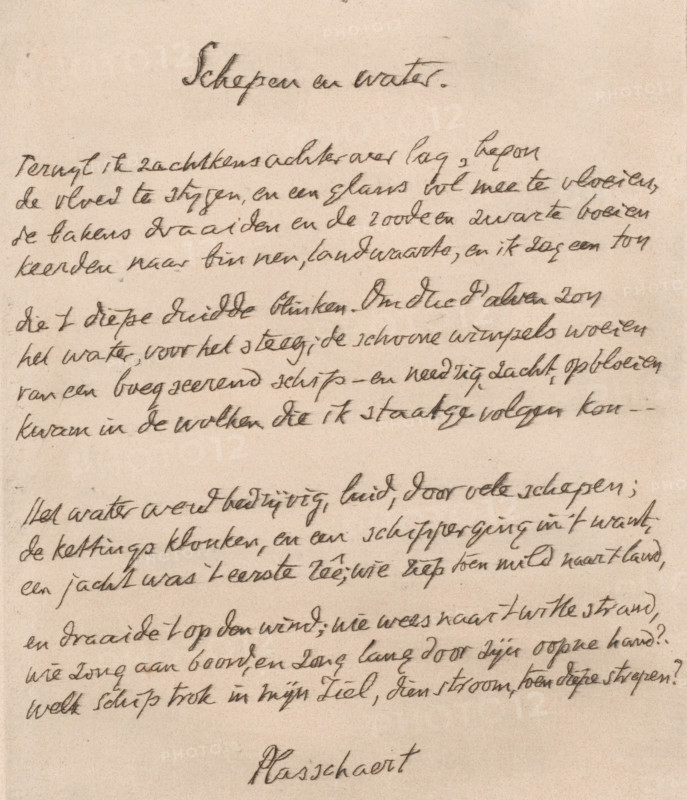 Schepen en water.
Terwyl ik zachtkens achterover lag, begon
de vloed te stygen, en een glans vol mee te vloeien,
de bakens draaiden en de roode en zwarte boeien
keerden naar binnen, landwaarts, en ik zag een ton
die 't diepe duidde blinken. Om d'avon zon
het water, voor het steeg; de schoone wimpels woeien
van een boegseerend schip – en needrig, zacht, opbloeien
kwam in de wolken die ik staâg volgen kon --
Het water werd bedrijvig, luid, door vele schepen;
de kettings klonken, en een schipper ging in 't want,
een jacht was 't eerste reê; wie riep toen mild naar 't land,
en draaide 't op den wind; wie wees naar 't witte strand,
wie zong aan boord, en zong lang door zijn oopne hand?
welk schip trok in mijn ziel, dien stroom, toen diepe strepen?
Plasschaert